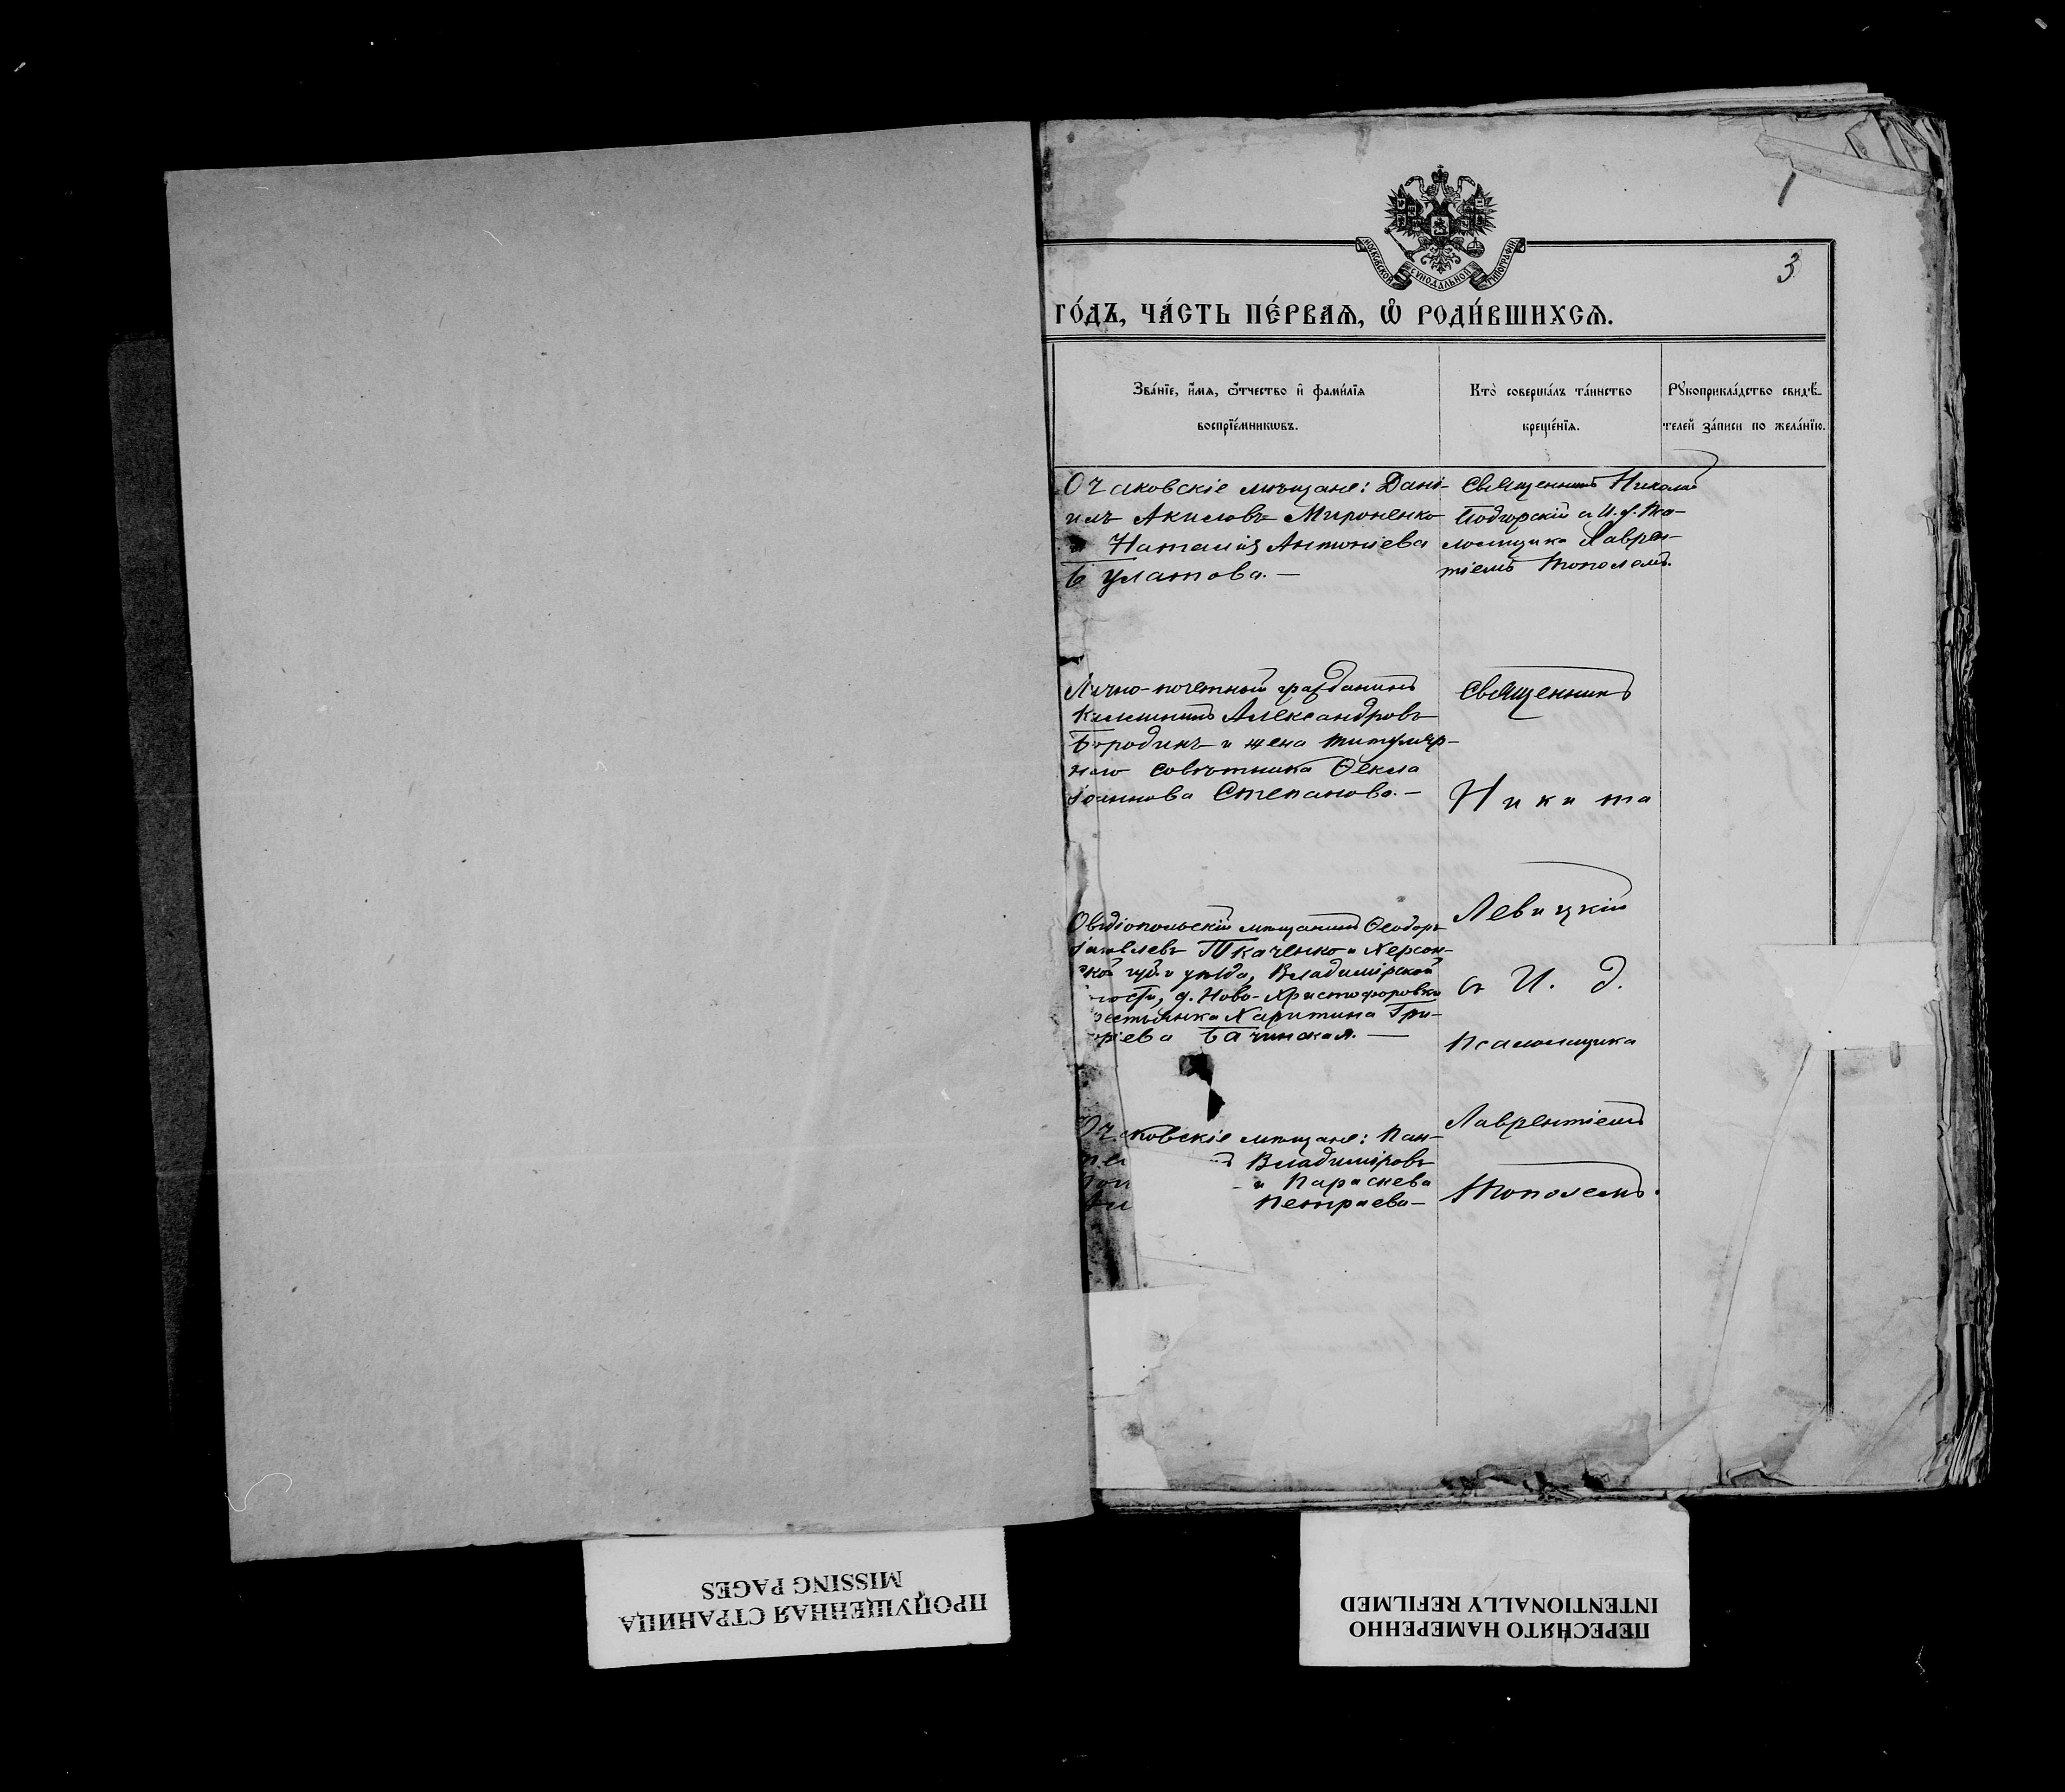 1
3
МОСКОВСКОЙ СѴНОДАЛЬНОЙ ТИПОГРАФІИ
ГО́ДЪ, ЧА́СТЬ ПЕ́РВАѦ, Ѡ҆ РОДИ́ВШИХСѦ.
Зва́нїе, и҆́мѧ, ѻ҆́тчество и҆ фами́лїѧ
воспрїе́мникѡвъ.
Кто̀ соверша́лъ та́инство
креще́нїѧ.
Рꙋкоприкла́дство свидѣ́-
телей за́писи по жела́нїю.
Очаковскіе мѣщане: Дані-
илъ Акиловъ Мироненко
и Наталія Антоніева
Булатова. —
Священникъ Николай
Подгорскій съ И. д. Пса-
ломщика Лаврен-
тіемъ Тополемъ.
Лично-почетный гражданинъ
Александровъ
Бородинъ и жена титуляр-
наго совѣтника Ѳекла
Іоаннова Степанова. —
Священникъ
Никита
Левицкій
съ И. д.
Псаломщика
Лаврентіемъ
Тополемъ.
Овидіопольскій мѣщанинъ Ѳеодоръ
Іаковлевъ Ткаченко и Херсон-
ской губ. и уѣзда, Владимірской
волости, д. Ново-Христофоровки
крестьянка Харитина Гри-
горіева Бачинская. —
Очаковскіе мѣщане: Пан-
Владиміровъ
и Параскева
Петраева —
ПРОПУЩЕННАЯ СТРАНИЦА
MISSING PAGES
ПЕРЕСНЯТО НАМЕРЕННО
INTENTIONALLY REFILMED